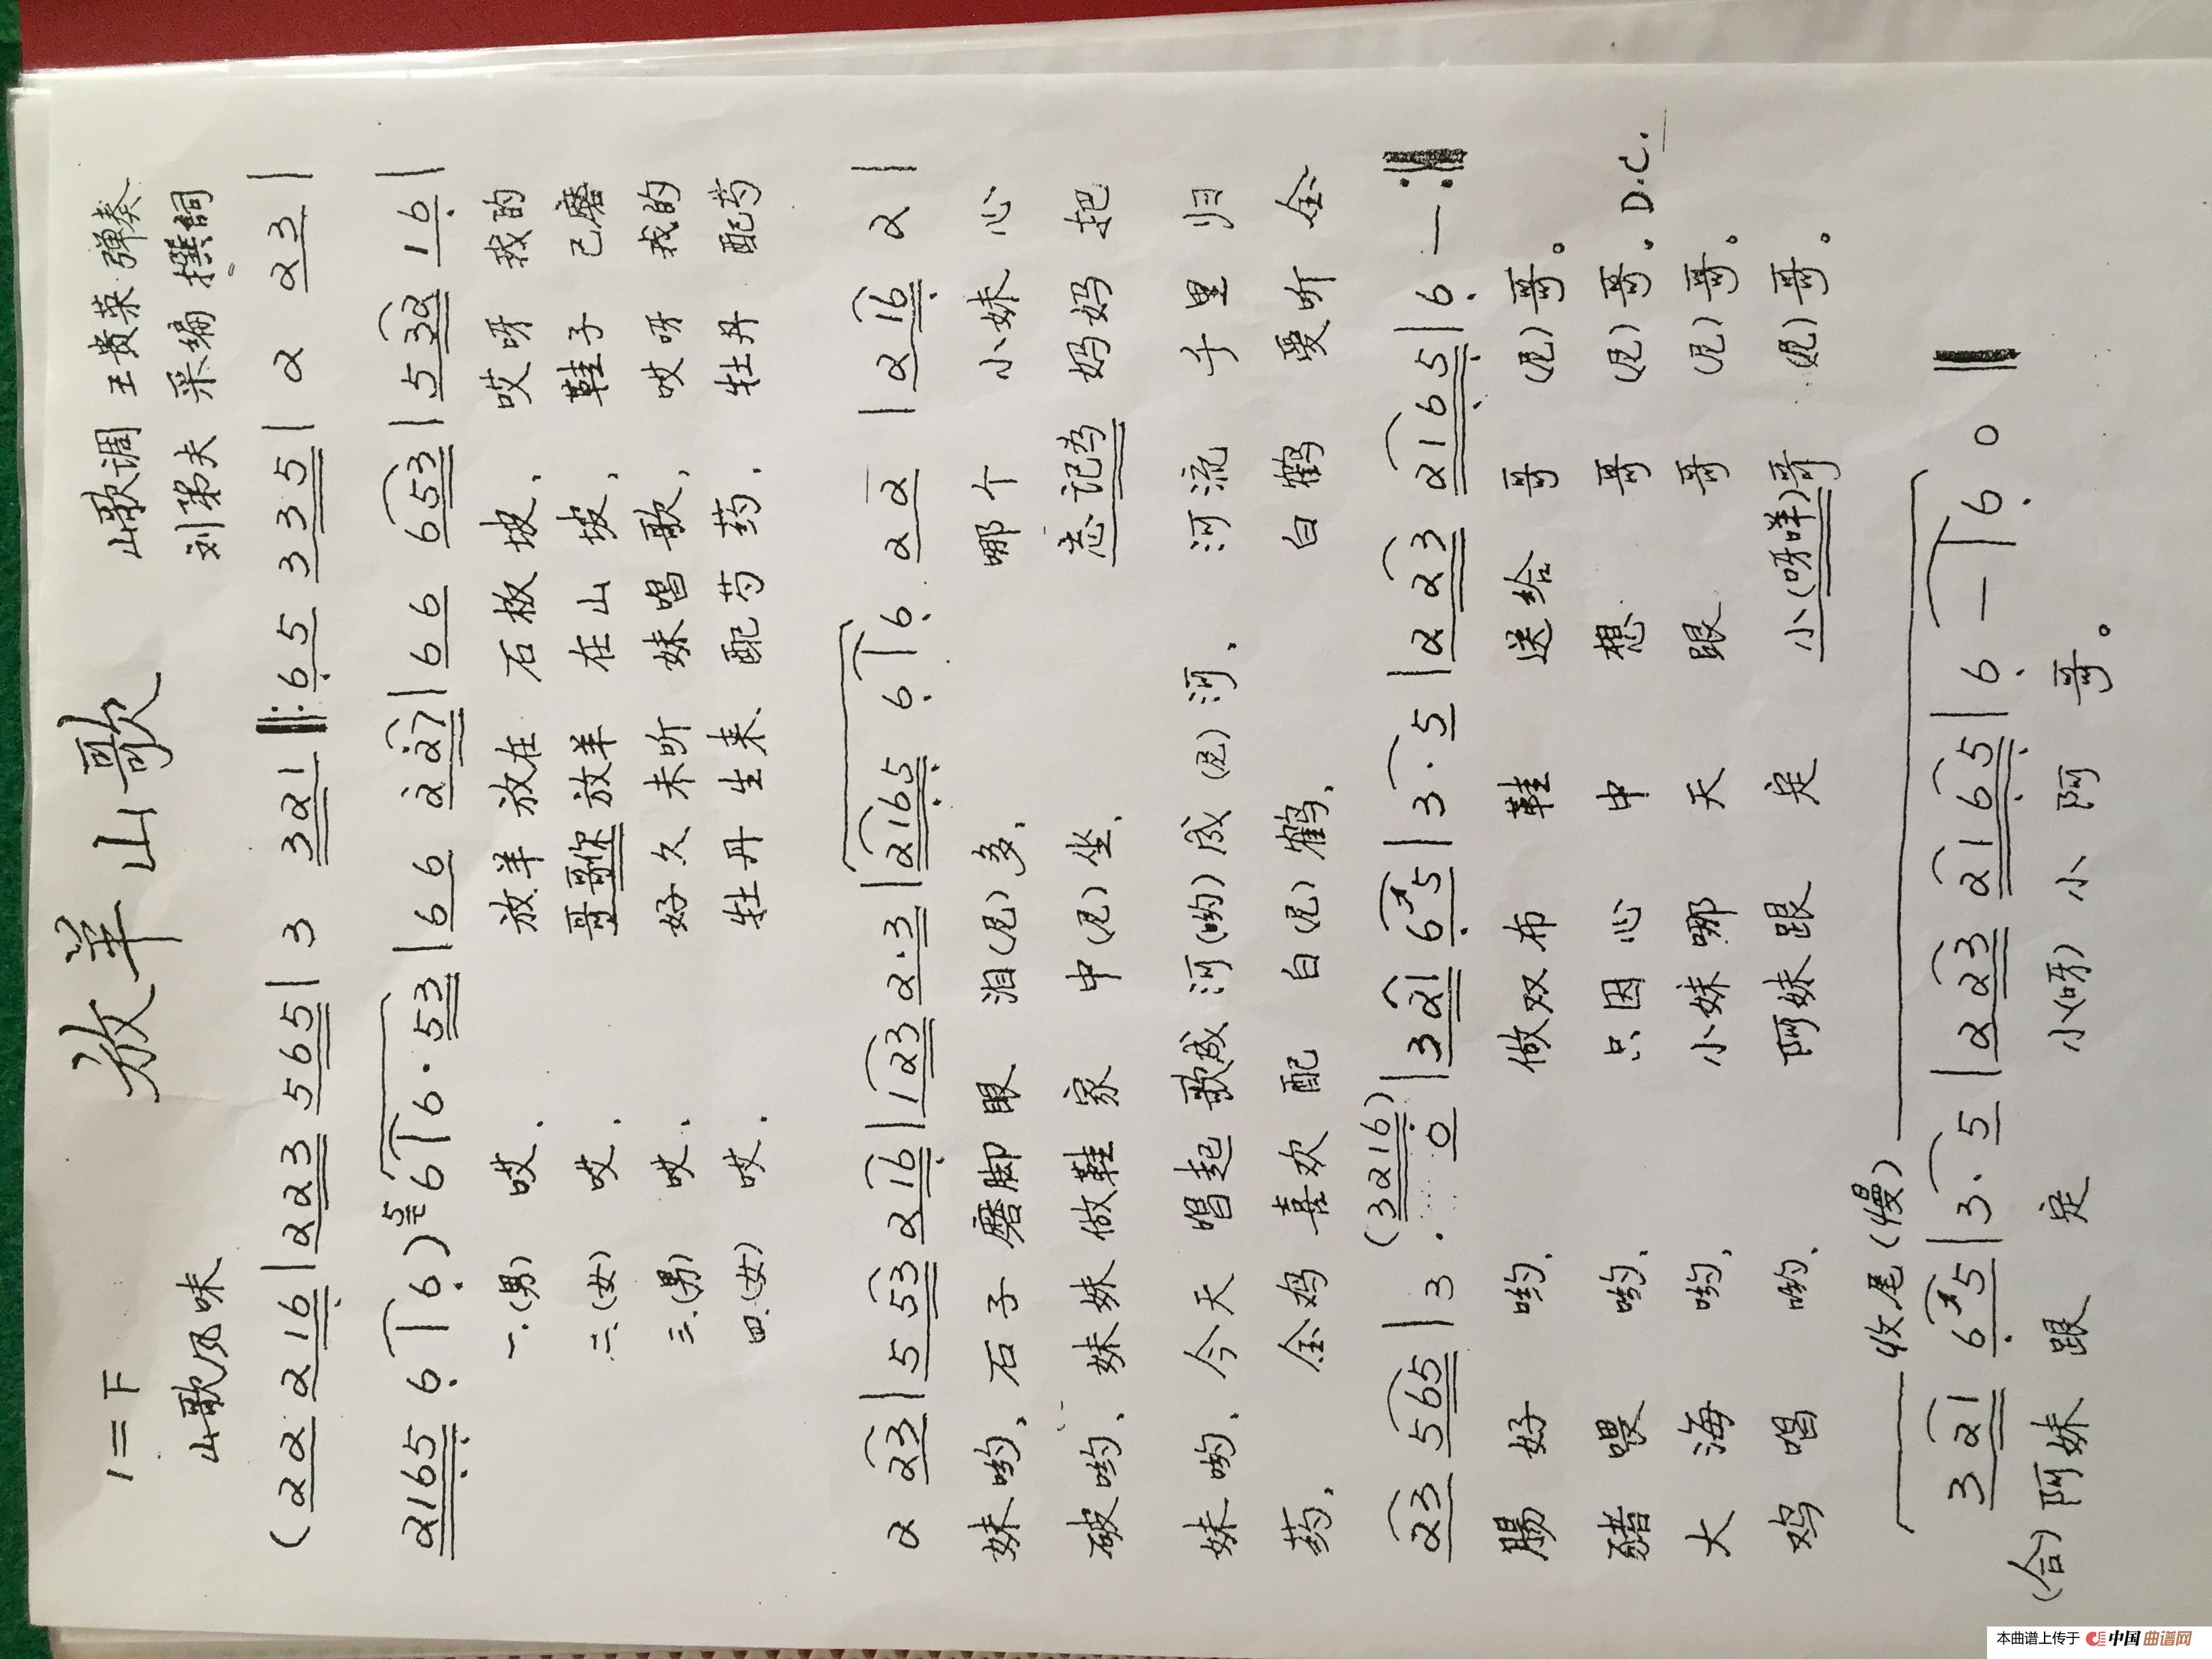 放羊山歌
1=F 山歌调 王贵荣 弹奏
山歌风味 刘第夫 采编 撰詞
(22 2 16 | 223 565 | 3 321 ‖: 65 335 | 2 23 |
2165 6 | 6) 5 6 | 6 · 53 | 66 227 | 66 653 | 532 16 |
一.(男) 哎. 放羊 放在 石板 坡、 哎呀 我的
二.(女) 哎. 哥哥你 放羊 在山 坡, 鞋子 已磨
三.(男) 哎. 好久 未听 妹唱 歌, 哎呀 我的
四.(女) 哎. 牡丹 生来、 配芍 药. 牡丹 配芍
2 23 | 5 53 2 16 | 123 2·3 | 2165 6 | 6 22 | 2 16 2 |
妹哟、 石子 磨脚 眼 泪(尼)多, 哪个 小妹 心
破哟、 妹妹 做鞋 家 中(尼)坐. 忘记为 妈妈 把
妹哟、 今天 唱起 歌成 河(哟)成(尼)河、 河流 子里 归
药, 金鸡 喜欢 配 白(尼)鹤、 白鹤 爱听 金
(3216)
23 565 | 3 · 0 | 321 65 | 3 · 5 | 223 2165 | 6 — :‖
腸 好 哟. 做双 布 鞋 送给 哥 (尼)哥。
豬 喂 哟、 只因 心 中 想 哥 (尼)哥。 D.C.
大 海 哟, 小妹 哪 天 跟 哥 (尼)哥。
鸡 唱 哟、 阿妹 跟 定 小(呀咩)哥 (尼)哥。
收尾(慢)
321 65 | 3 · 5 | 223 2165 | 6 — | 6 0 ‖
(合)阿妹 跟 定 小(呀)小 阿 哥。
本曲谱上传于 中国曲谱网